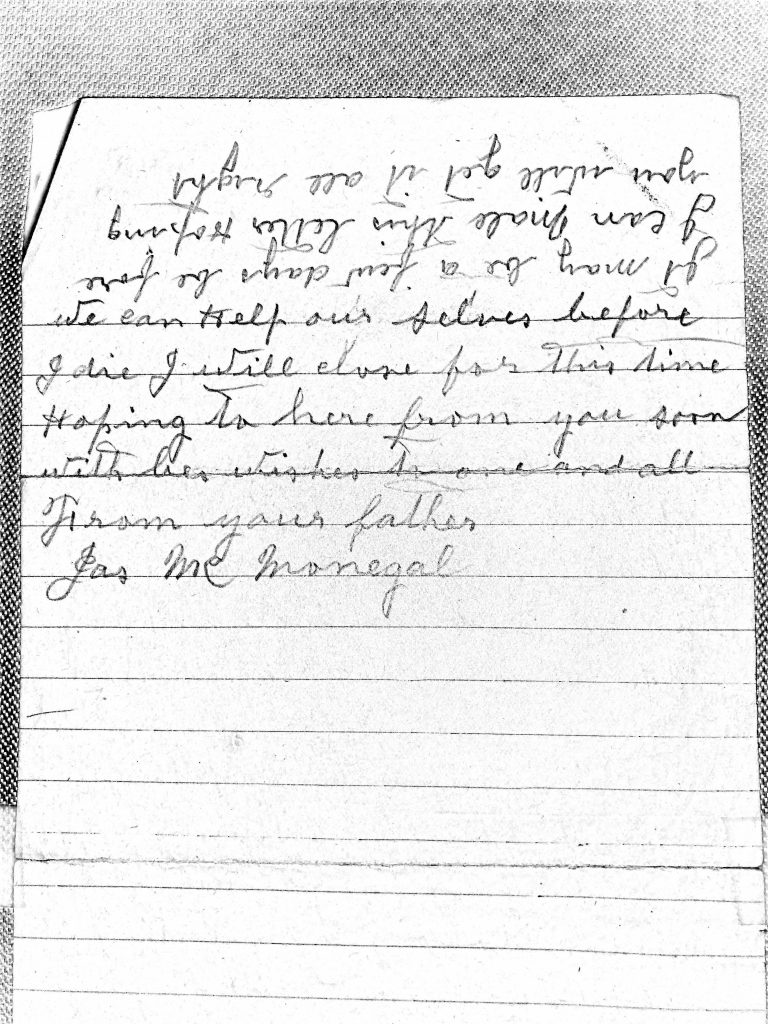 we can Help our selves before
I die I will close for this time
Hoping to here from you soon
with bes wishes to one and all
From your father
Jas Mc Monegal
It may be a few days be fore
I can Male this letter Hoping
you will get it all right